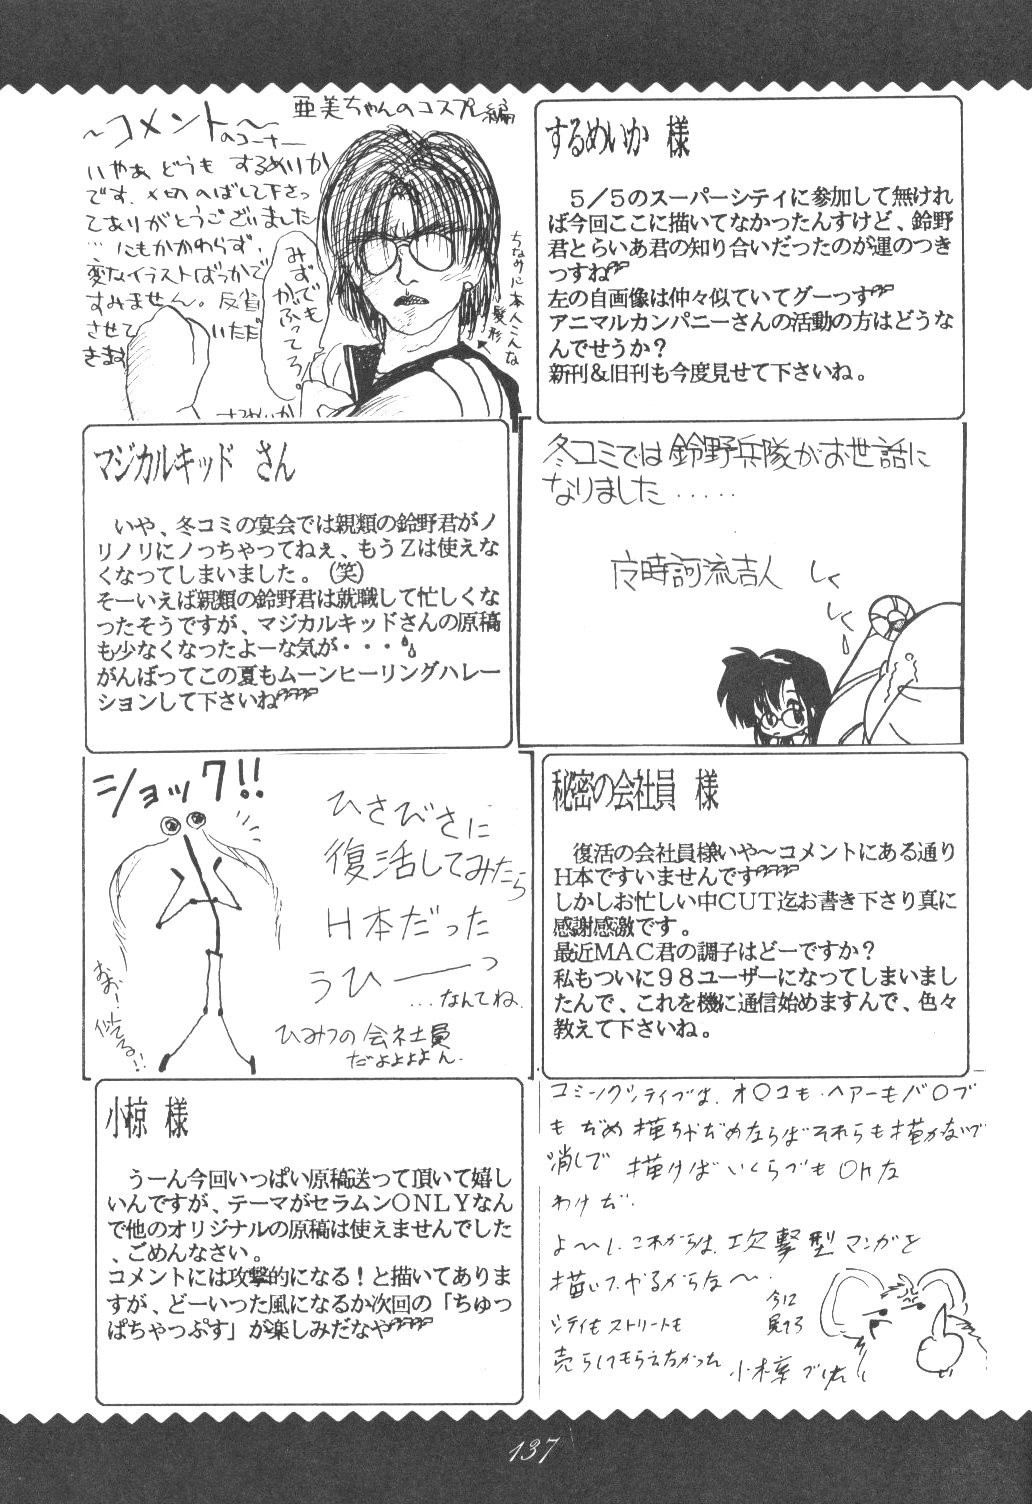 亜美ちゃんのコスプレ編
～コメント～
のコーナー
いやあ どうも するめいか
です。〆切 のばして下さっ
てありがとうございました
…にもかかわらず、
変なイラストばっかで
すみません。反省
させて いただ
きます
みずでも
かぶってろ。
ちなみに本人こんな
髪形
するめいか
するめいか 様
5/5のスーパーシティに参加して無けれ
ば今回ここに描いてなかったんすけど、鈴野
君とらいあ君の知り合いだったのが運のつき
っすね
左の自画像は仲々似ていてグーっす
アニマルカンパニーさんの活動の方はどうな
んでせうか?
新刊&旧刊も今度見せて下さいね。
マジカルキッド さん
いや、冬コミの宴会では親類の鈴野君がノ
リノリにノっちゃってねぇ、もうZは使えな
くなってしまいました。(笑)
そーいえば親類の鈴野君は就職して忙しくな
ったそうですが、マジカルキッドさんの原稿
も少なくなったよーな気が・・・
がんばってこの夏もムーンヒーリングハレー
ションして下さいね
冬コミでは鈴野兵隊がお世話に
なりました.....
しく
しく
ショック!!
ひさびさに
復活してみたら
H本だった
うひーーっ
...なんてね。
おおー!
似てる!!
ひみつの会社員
だよよよよん.
秘密の会社員 様
復活の会社員様いや～コメントにある通り
H本ですいませんです
しかしお忙しい中CUT迄お書き下さり真に
感謝感激です。
最近MAC君の調子はどーですか?
私もついに98ユーザーになってしまいまし
たんで、これを機に通信始めますんで、色々
教えて下さいね。
小椋 様
うーん今回いっぱい原稿送って頂いて嬉し
いんですが、テーマがセラムンONLYなん
で他のオリジナルの原稿は使えませんでした
、ごめんなさい。
コメントには攻撃的になる!と描いてありま
すが、どーいった風になるか次回の「ちゅっ
ぱちゃっぷす」が楽しみだなや
コミックシティでは、オ○コも、ヘアーもバ○ブ
も だめ 描ちゃだめならば それらも描かないで
消しで 描けば いくらでも OKな
わけだ.
よ～し、これからは、攻撃型マンガを
描いてやるからな～.
今に
見てろ
シティも ストリートも
売らしてもらえなかった
137